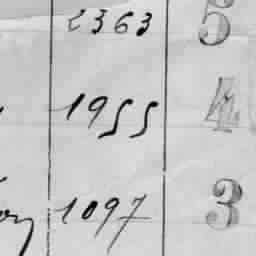 2363 5
1955 4
1097 3